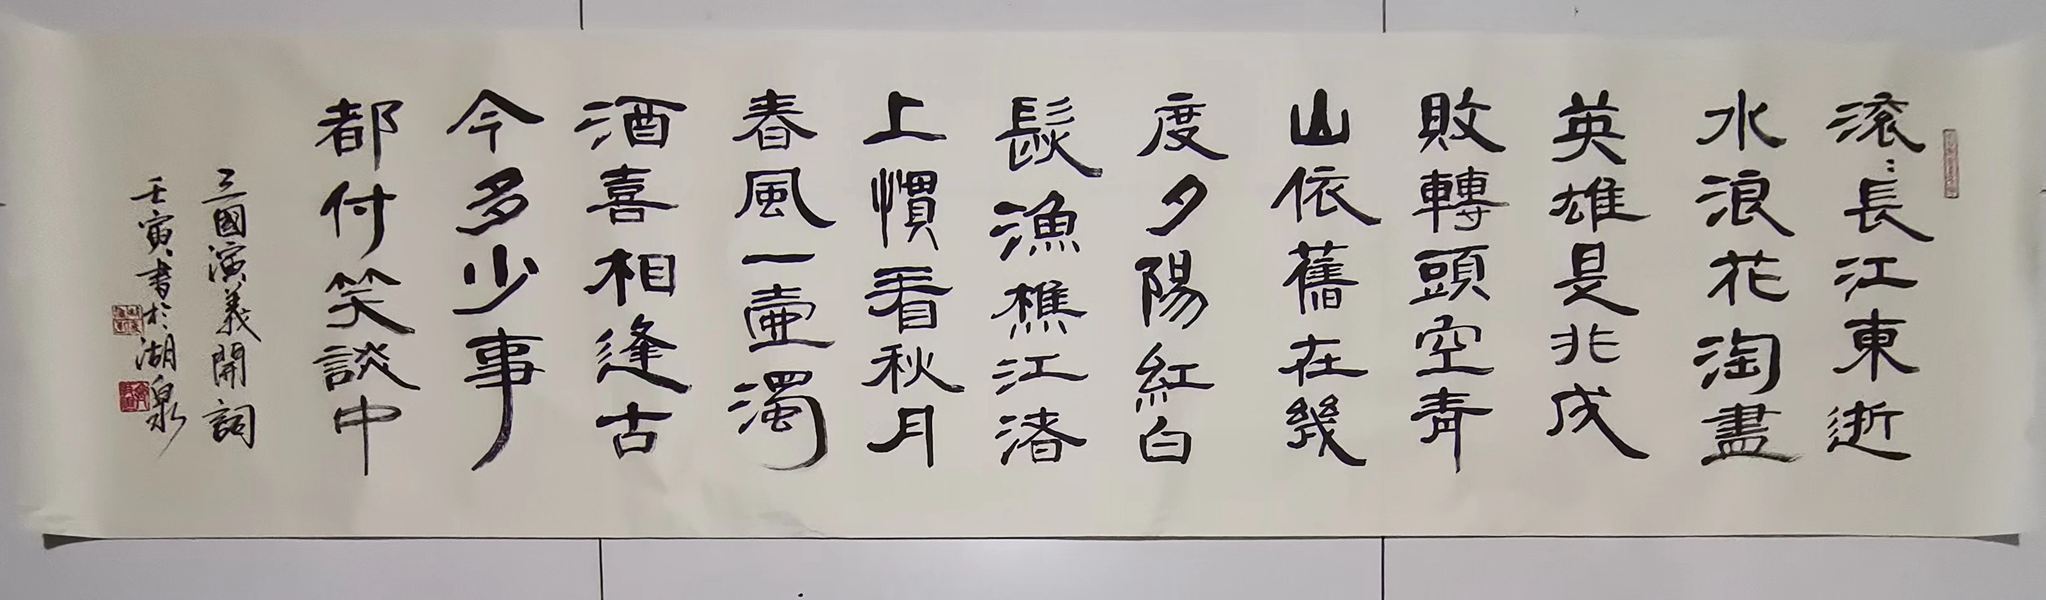 滚〻長江東逝
水浪花淘盡
英雄是非成
敗轉頭空青
山依舊在幾
度夕陽紅白
髮漁樵江渚
上慣看秋月
春風一壺濁
酒喜相逢古
今多少事
都付笑談中
三國演義開詞
壬寅書於湖泉